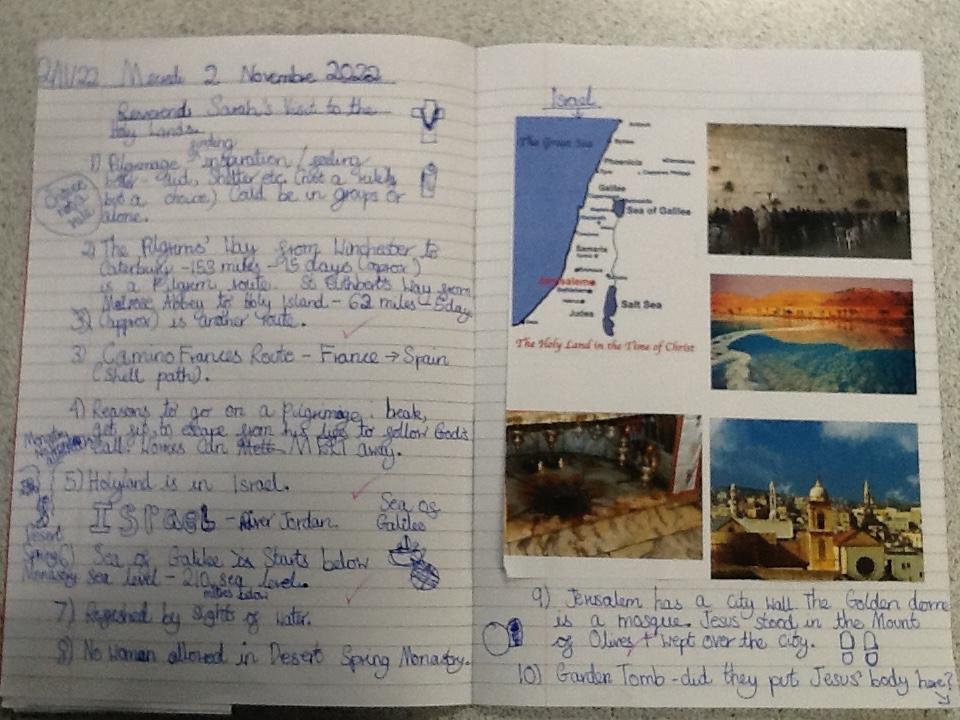 2/11/22 Mercredi 2 Novembre 2022
Reverend Sarah's Visit to the
Holy Lands.
finding
1) Pilgrimage - inspiration / seeking
aid, shelter etc. (not a rule
but a choice) Could be in groups or
alone.
Choice
not a
rule
2) The Pilgrims' Way from Winchester to
Caterbury - 153 miles - 15 days (approx)
is a Pilgrim route. St Cuthbert's Way from
Melrose Abbey to Holy Island - 62 miles - 
3) (approx) is another route.
3) Camino Frances Route - France → Spain
(shell path).
4) Reasons to go on a Pilgrimage:
to escape from his life to follow God's
call. Worries can MELT away.
5) Holyland is in Israel.
Israel - River Jordan.
Sea of
Galilee
Desert
Spring
Monastery
6) Sea of Galilee Starts below
sea level - 210 sea level.
metres below
7) Refreshed by sights of water.
8) No woman allowed in Desert Spring Monastry.
Israel
The Great Sea
Phoenicia
Galilee
Sea of Galilee
Samaria
Jerusalem
Judea
Salt Sea
The Holy Land in the Time of Christ
9) Jerusalem has a city wall. The Golden dome
is a mosque. Jesus stood in the Mount
of Olives + wept over the city.
10) Garden Tomb - did they put Jesus' body here?